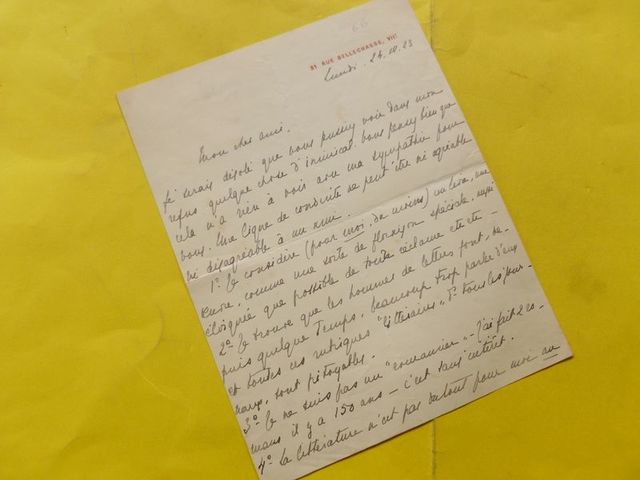 51 RUE BELLECHASSE, VIIᵉ
Lundi. 24.
Mon cher ami.
Je serais désolé que vous pussiez voir dans mon
refus quelque chose d'inamical. Vous pensez bien que
cela n'a rien à voir avec ma sympathie pour
vous. Une ligne de conduite ne peut être ni agréable
ni désagréable à un ami.
1º Je considère (pour moi, du moins) un livre, une
œuvre, comme une sorte de floraison spéciale, aussi
éloignée que possible de toute réclame etc etc –
2º Je trouve que les hommes de lettres font, de-
puis quelque temps, beaucoup trop parler d'eux
et toutes ces rubriques "littéraires", ds tous les jour-
naux, sont pitoyables.
3º Je ne suis pas un "romancier" – J'ai fait 2 ro-
mans il y a 150 ans – c'est sans intérêt.
4º La littérature n'est pas surtout pour moi au